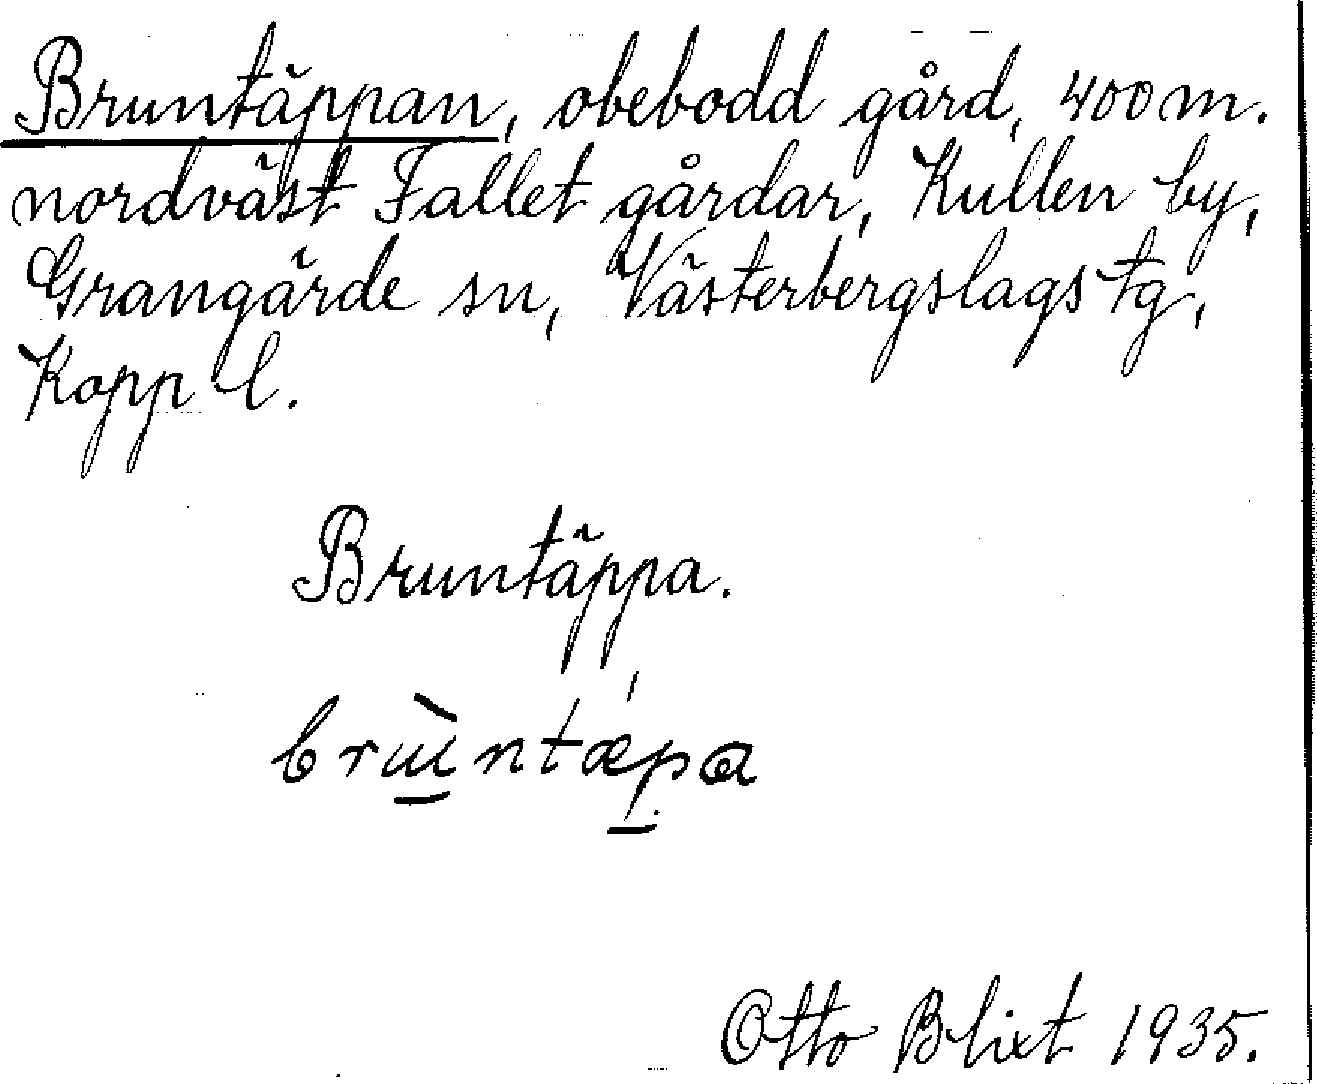 Bruntäppan, obebodd gård, 400 m.
nordväst Fallet gårdar, Kullen by,
Grangärde sn, Västerbergslags tg,
Kopp. l.
Bruntäppa.
Otto Blixt 1935.